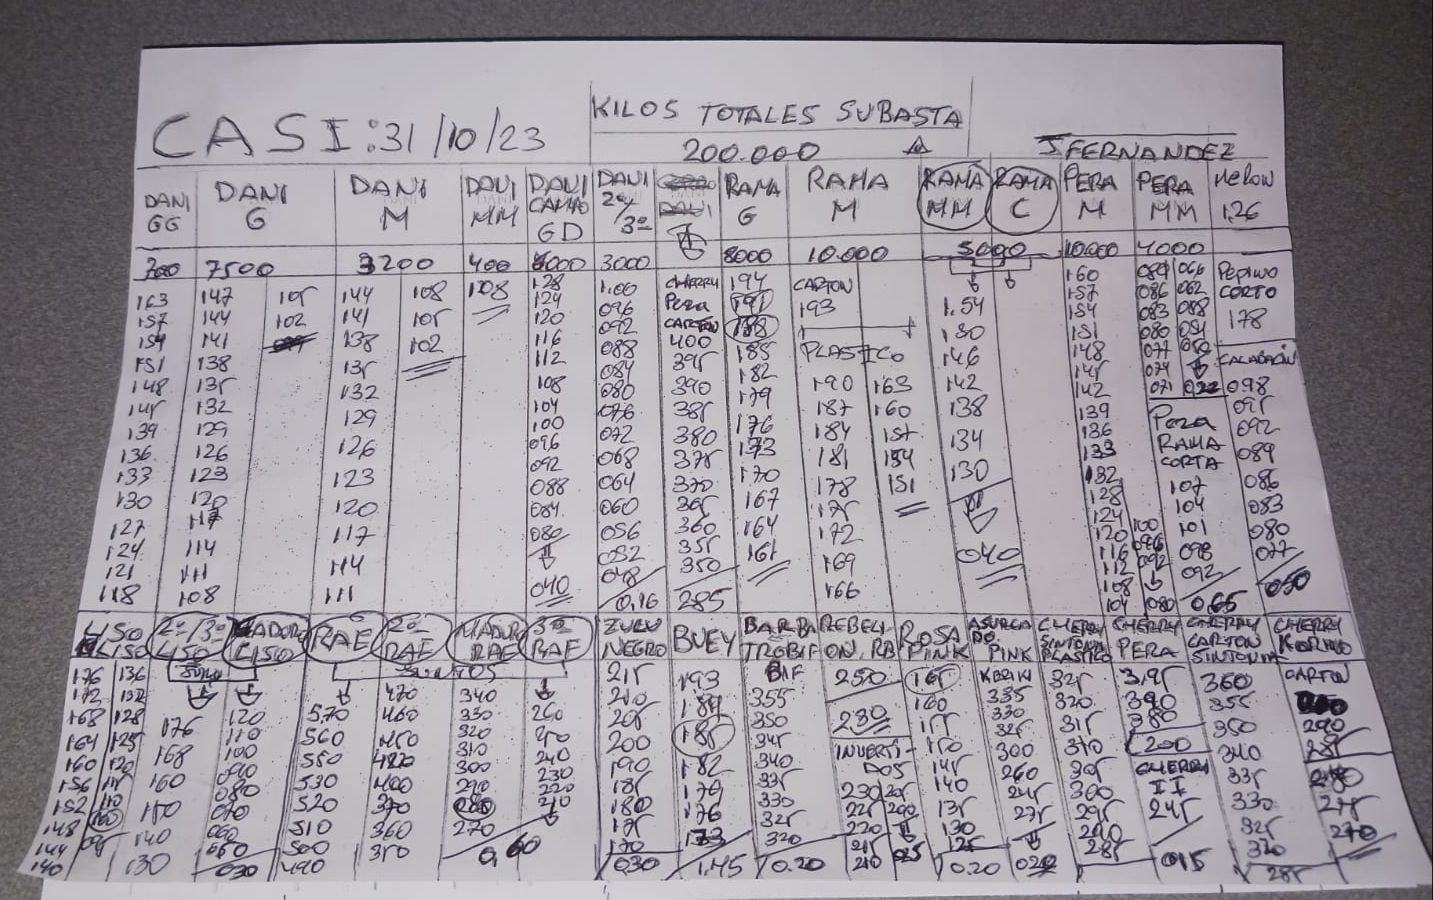 CASI: 31/10/23
KILOS TOTALES SUBASTA
200.000
J. FERNANDEZ
DANI GG
DANI G
DANI M
DANI MM
DANI CAMPO GD
DANI 2ª/3ª
DANI
RAMA G
RAMA M
RAMA MM
RAMA C
PERA M
PERA MM
MELON 1,26
7500
3200
400
3000
8000
10.000
5000
10000
4000
163
157
154
151
148
145
139
136
133
130
127
124
121
118
147
144
141
138
135
132
129
126
123
120
117
114
111
108
105
102
144
141
138
135
132
129
126
123
120
117
114
111
108
105
102
108
128
124
120
116
112
108
104
100
096
092
088
084
080
040
1.00
096
092
088
084
080
076
072
068
064
060
056
052
048
0,16
CHERRY
PERA
CARTON
400
395
390
385
380
375
370
365
360
355
350
285
194
191
188
185
182
179
176
173
170
167
164
161
CARTON
193
PLASTICO
190
187
184
181
178
175
172
169
166
163
160
157
154
151
1.54
150
146
142
138
134
130
040
160
157
154
151
148
145
142
139
136
133
132
128
124
120
116
112
108
104
100
096
092
080
089
086
083
080
077
074
071
066
062
PERA
RAMA
CORTA
107
104
101
098
092
0,65
PEPINO
CORTO
178
CALABACIN
098
095
092
089
086
083
080
077
050
LISO
2ª/3ª LISO
RAF
2ª RAF
MADUR RAF
3ª RAF
ZULU NEGRO
BUEY
BARBA
REBELION, RB
ROSA PINK
ASURCADO. PINK
CHERRY SINTONIA PLASTICO
CHERRY PERA
CHERRY CARTON SINTONIA
CHERRY KORINO
176
172
168
164
160
156
152
148
144
140
136
132
128
125
120
176
168
160
150
140
130
120
110
100
090
080
070
060
050
030
570
560
550
530
520
510
500
490
470
460
450
420
400
370
360
350
340
330
320
310
300
290
280
270
0,60
260
250
240
230
220
210
215
210
205
200
190
185
180
175
170
0.30
193
189
185
182
179
176
173
1.45
BIF
355
350
345
340
335
330
325
320
0.20
250
230
INVERTI-
DOS
230
225
220
215
210
205
200
165
160
155
150
145
140
135
130
125
0.20
335
330
325
300
260
245
275
325
320
315
310
305
300
295
290
285
3,95
390
380
200
CHERRY
II
245
015
360
355
350
340
335
330
325
320
285
CARTON
290
285
280
275
270